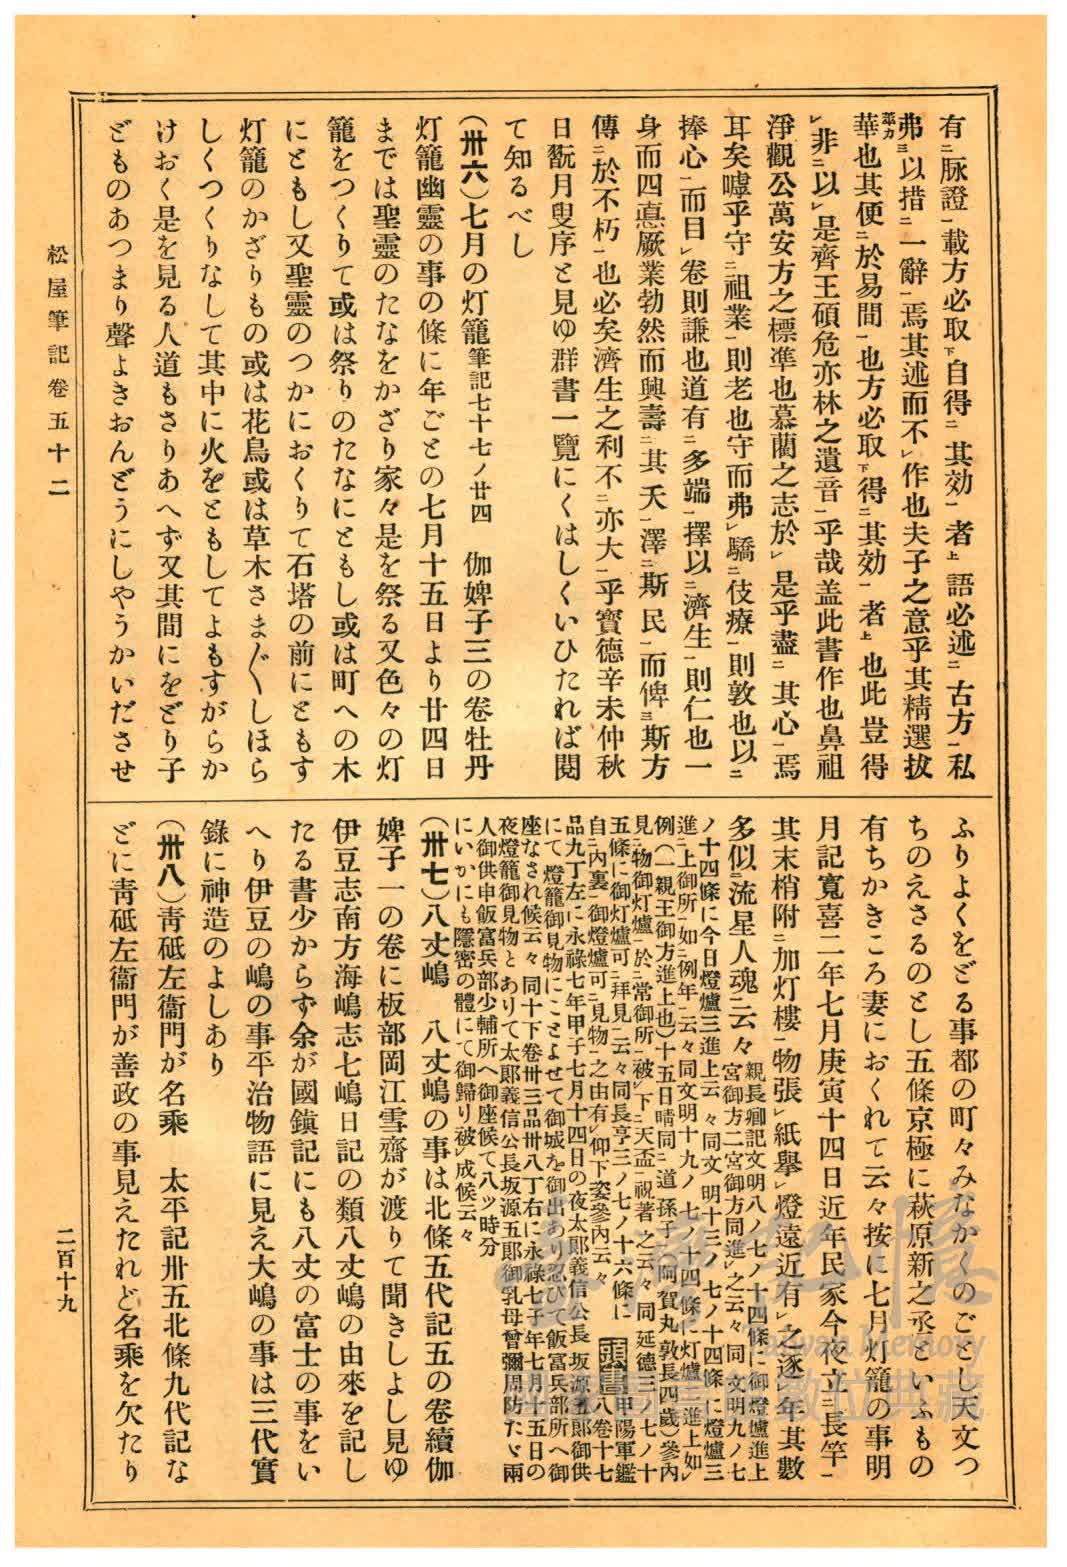 有㆓脉證㆒載方必取㆘自得㆓其効㆒者㆖語必述㆓古方㆒私
弗㆔以措㆓一辭㆒焉其述而不㆑作也夫子之意乎其精選拔
萃カ
華也其便㆓於易簡㆒也方必取㆘得㆓其効㆒者㆖也此豈得
㆑非㆓以㆑是齊王碩危亦林之遺音㆒乎哉盖此書作也鼻祖
淨觀公萬安方之標準也慕藺之志於㆑是乎盡㆓其心㆒焉
耳矣嘑乎守㆓祖業㆒則老也守而弗㆑驕㆓伎療㆒則敦也以㆓
捧心㆒而目㆑卷則謙也道有㆓多端㆒擇以㆓濟生㆒則仁也一
身而四悳厥業勃然而興壽㆓其夭㆒澤㆓斯民㆒而俾㆔斯方
傳㆓於不朽㆒也必矣濟生之利不㆓亦大㆒乎寳德辛未仲秋
日翫月叟序と見ゆ群書一覽にくはしくいひたれば閱
て知るべし
(卅六)七月の灯籠 筆記七十七ノ廿四 伽婢子三の卷牡丹
灯籠幽靈の事の條に年ごとの七月十五日より廿四日
までは聖靈のたなをかざり家々是を祭る又色々の灯
籠をつくりて或は祭りのたなにともし或は町への木
にともし又聖靈のつかにおくりて石塔の前にともす
灯籠のかざりもの或は花鳥或は草木さま〴〵しほら
しくつくりなして其中に火をともしてよもすがらか
けおく是を見る人道もさりあへず又其間にをどり子
どものあつまり聲よきおんどうにしやうかいださせ
ふりよくをどる事都の町々みなかくのごとし天文つ
ちのえさるのとし五條京極に萩原新之丞といふもの
有ちかきころ妻におくれて云々按に七月灯籠の事明
月記寬喜二年七月庚寅十四日近年民家今夜立㆓長竿㆒
其末梢附㆓加灯樓㆒物張㆑紙擧㆑燈遠近有㆑之逐㆑年其數
多似㆓流星人魂㆒云々
親長卿記文明八ノ七ノ十四條に御燈爐進上
宮御方二宮御方同進㆑之云々同文明九ノ七
ノ十四條に今日燈爐三進上云々同文明十三ノ七ノ十四條に燈爐三
進㆓上御所㆒如㆓例年㆒云々同文明十九ノ七ノ十四條に灯爐㆒進上如㆑
例(一親王御方進上也)十五日晴同㆓道孫子(阿賀丸敦長四歲)參內
見㆓物御灯爐㆒於㆓常御所㆒被㆑下㆓天盃㆒祝著之云々同延德三ノ七ノ十
五條に御灯爐可㆓拜見㆒云々同長亨三ノ七ノ十六條に
自㆓內裏㆒御燈爐可㆓見物㆒之由有㆑仰下姿參內云々 頭書 甲陽軍鑑
八卷十七
品九丁左に永祿七年甲子七月十四日の夜太郞義信公長坂源五郞御供
にて燈籠御見物にことよせて御城を御出あり忍びて飯富兵部所へ御
座なされ候云々同十下卷卅三品卅八丁右に永祿七子年七月十五日の
夜燈籠御見物とありて太郞義信公長坂源五郞御乳母曾彌周防たゞ兩
人御供申飯富兵部少輔所へ御座候て八ツ時分
にいかにも隱密の體にて御歸り被㆑成候云々
(卅七)八丈嶋 八丈嶋の事は北條五代記五の卷續伽
婢子一の卷に板部岡江雪齋が渡りて聞きしよし見ゆ
伊豆志南方海嶋志七嶋日記の類八丈嶋の由來を記し
たる書少からず余が國鎭記にも八丈の富士の事をい
へり伊豆の嶋の事平治物語に見え大嶋の事は三代實
錄に神造のよしあり
(卅八)靑砥左衞門が名乘 太平記卅五北條九代記な
どに靑砥左衞門が善政の事見えたれど名乘を欠たり
松屋筆記卷五十二
二百十九
臺灣記憶
Taiwan Memory
國家圖書館數位典藏